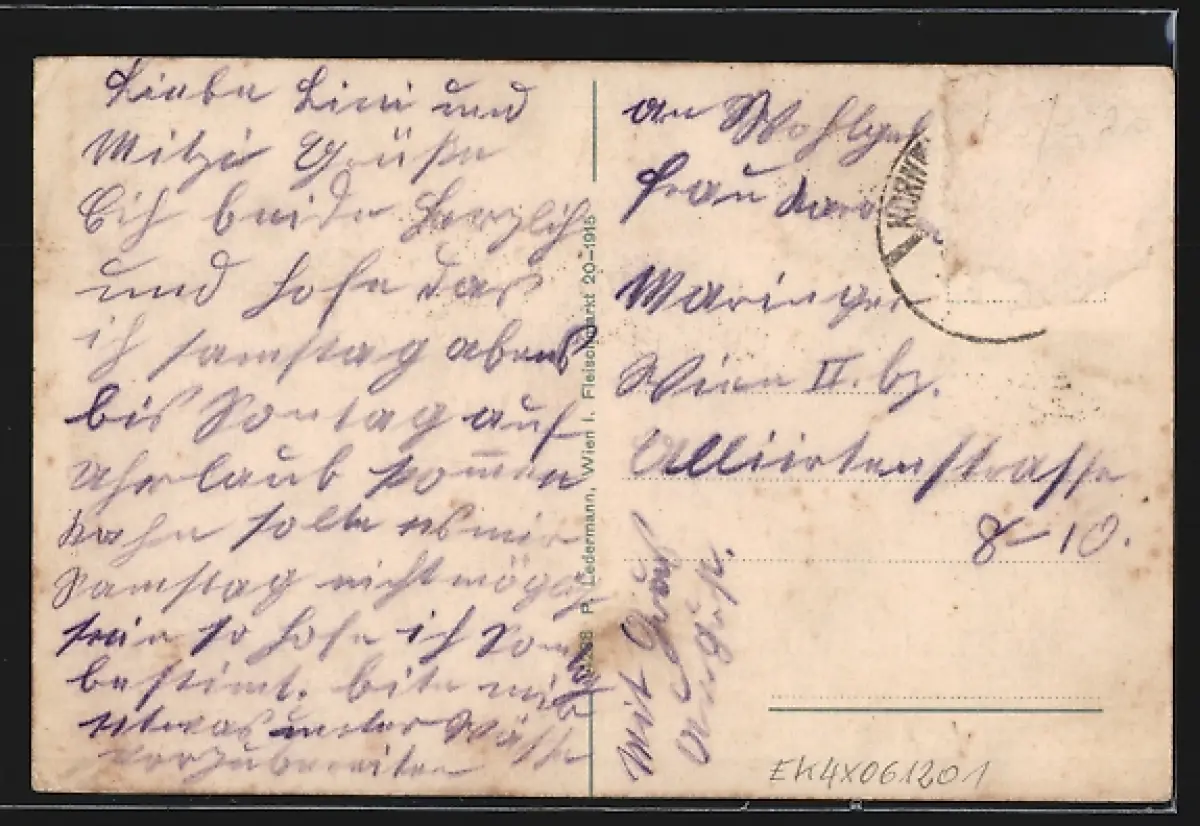 Liebe Lini und
Mitzi Grüße
Eich beide Herzlich
und hofe das
ich samstag abens
bis Sontag auf
Uhrlaub kommen
solte es mir
Samstag nicht möglich
sein so hofe ich Sontag
bestimt. bite mir
etwas unter Wäsche
vorzubereiten
P. Ledermann, Wien I. Fleischmarkt 20-1915
An Wohlgeb
Frau
Maringer
Wien II. bz.
Alliirtenstrasse
8-10.
Mit Gruß
EK4X061201